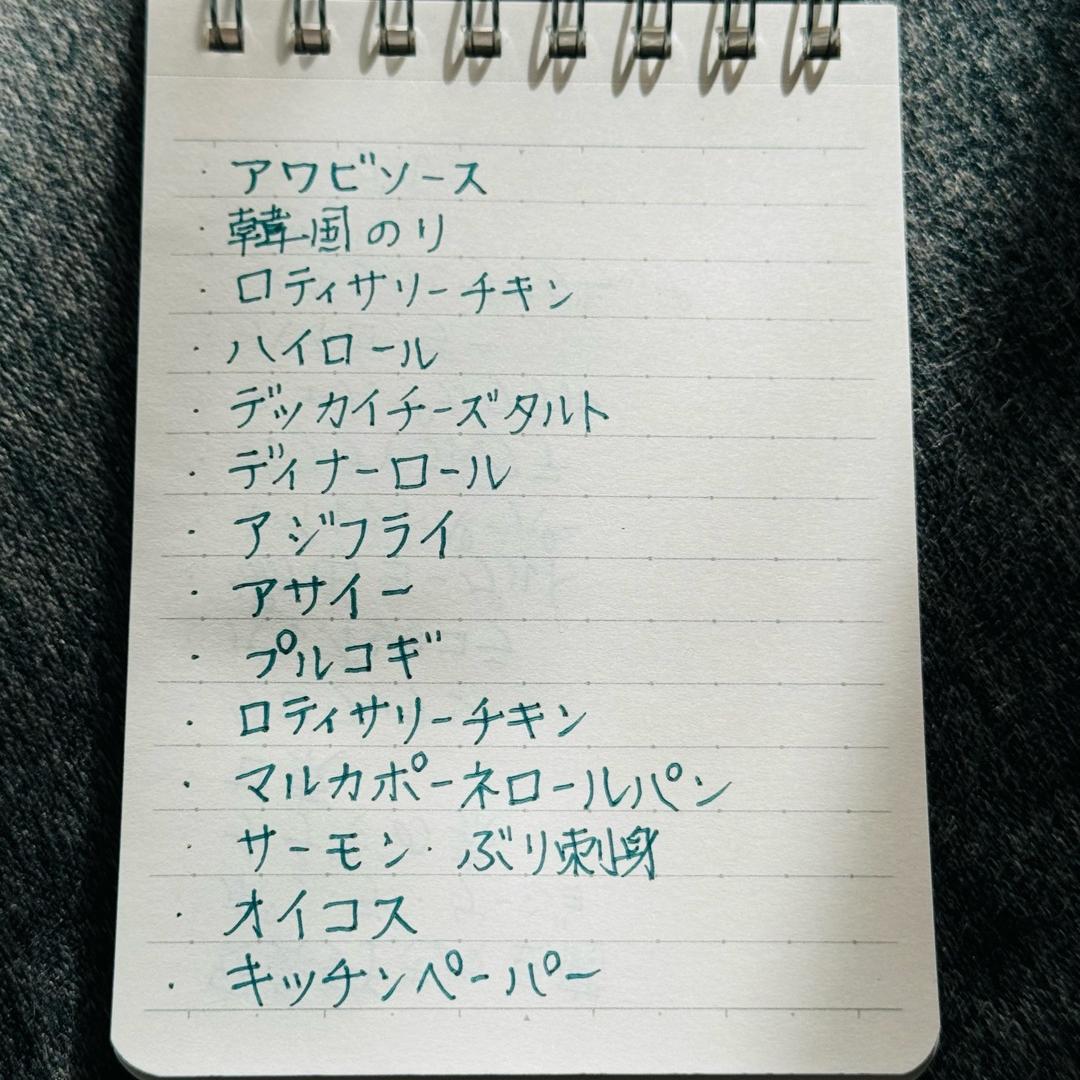 ・アワビソース
・韓国のり
・ロティサリーチキン
・ハイロール
・デッカイチーズタルト
・ディナーロール
・アジフライ
・アサイー
・プルコギ
・ロティサリーチキン
・マルカポーネロールパン
・サーモン・ぶり刺身
・オイコス
・キッチンペーパー